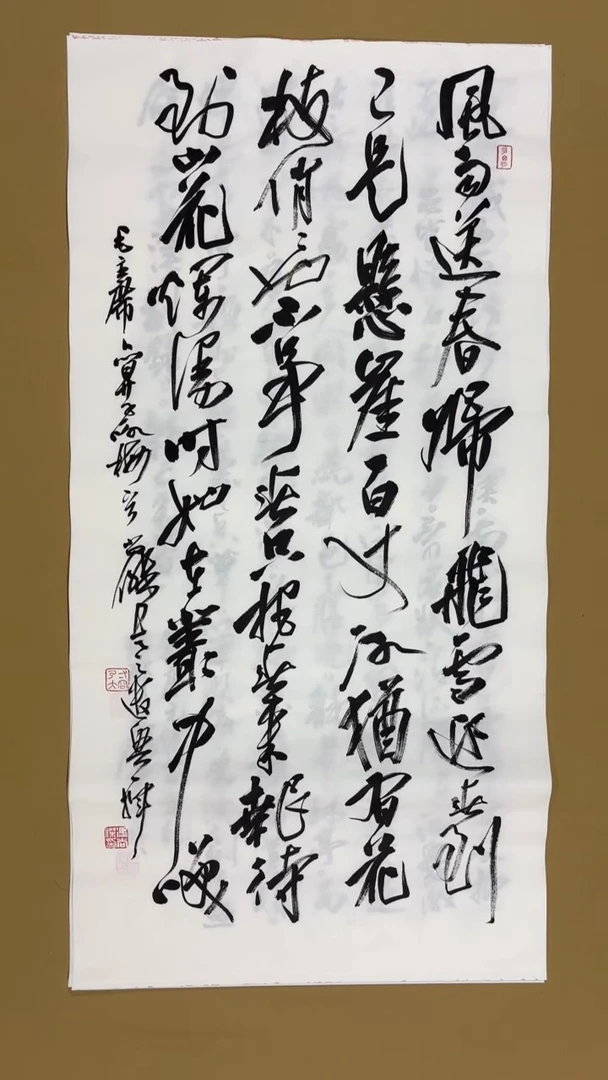 風雨送春歸飛雪迎春到
已是懸崖百丈冰猶有花
枝俏〻也不爭春只把春來報待
到山花爛漫時她在叢中笑
毛主席卜算子詠梅